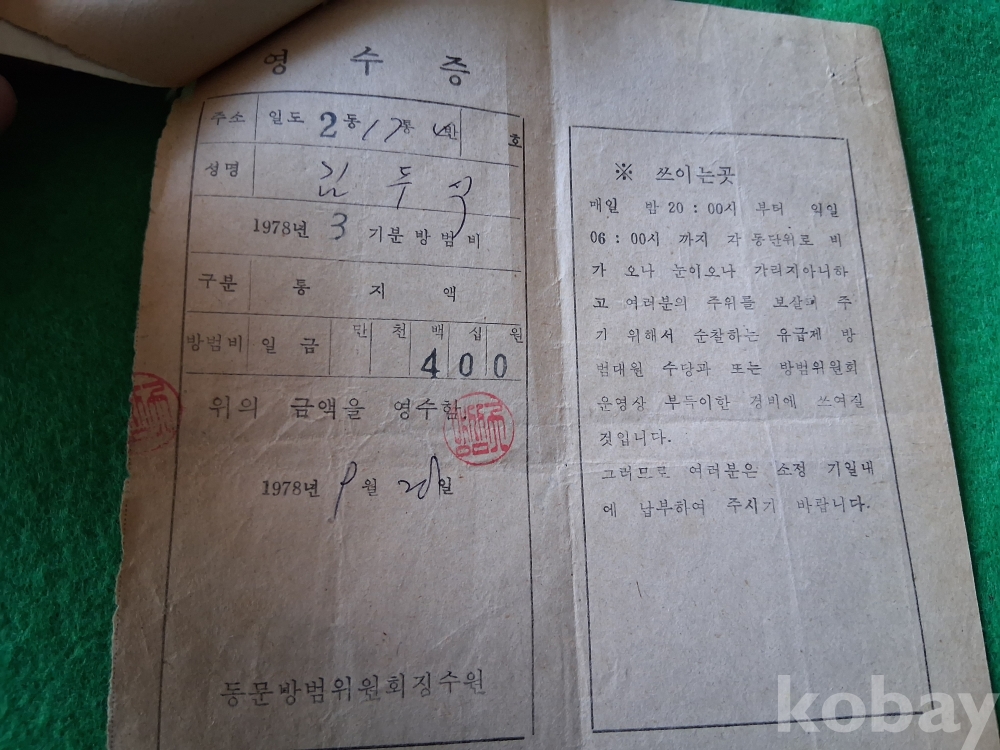 영수증
주소 일도 2동 17통 반 호
성명 김두
1978년 3 기분방범비
구분 통지액
방범비 일금 만 천 백 십 원
400
위의 금액을 영수함.
1978년 9월 28일
동문방범위원회징수원
※ 쓰이는곳
매일 밤 20:00시 부터 익일
06:00시 까지 각 동단위로 비
가 오나 눈이오나 가리지아니하
고 여러분의 주위를 보살펴 주
기 위해서 순찰하는 유급제 방
범대원 수당과 또는 방범위원회
운영상 부득이한 경비에 쓰여질
것입니다.
그러므로 여러분은 소정 기일내
에 납부하여 주시기 바랍니다.
kobay